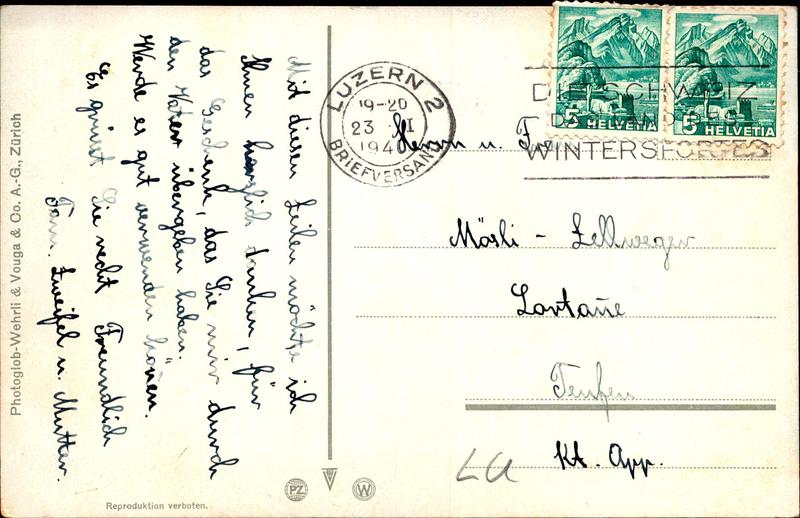 Mit diesen Zeilen möchte ich
Ihnen herzlich danken, für
das Geschenk, das Sie mir durch
den Vater übergeben haben.
Werde es gut verwenden können.
Es grüsst Sie recht Freundlich
Fam. Zweifel u. Mutter.
Photoglob-Wehrli & Vouga & Co. A.-G., Zürich
Reproduktion verboten.
PZ
W
LUZERN 2
19-20
23. I
1940
BRIEFVERSAND
5 HELVETIA
5 HELVETIA
DIE SCHWEIZ
WINTERSPORTES
Herrn u. Fr
Mösli - Zellweger
Teufen
Kt. App.